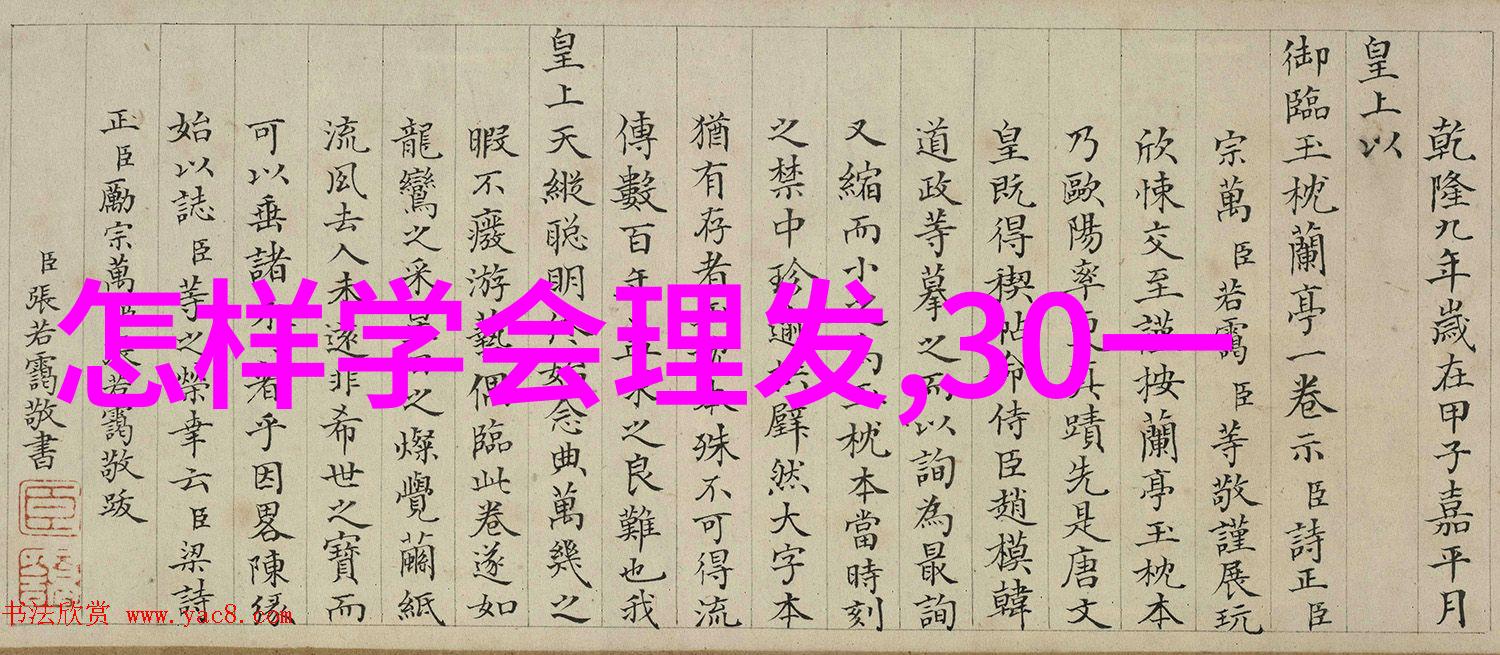 乾隆九年歲在甲子嘉平月
皇上以
御臨玉枕蘭亭一卷示臣詩正臣
宗萬臣若靄臣等敬謹展玩
欣悚交至謹按蘭亭玉枕本
乃歐陽率更真蹟先是唐文
皇既得禊帖命侍臣趙模韓
道政等摹之而以詢為最詢
又縮而小之為玉枕本當時刻
之禁中珍逾拱璧然大字本
猶有存者玉枕本殊不可得流
傳數百年本之良難也我
皇上天縱聰明念典萬幾之
暇不廢游藝偶臨此卷遂如
龍鸞之采星日之燦覺繭紙
流風去人未遠非希世之寶而
可以垂諸者乎因畧陳緣
始以誌臣等之榮幸云臣梁詩
正臣勵宗萬若靄敬跋
臣張若靄敬書
怎样学会理发,30一
书法欣赏 www.yac8.com